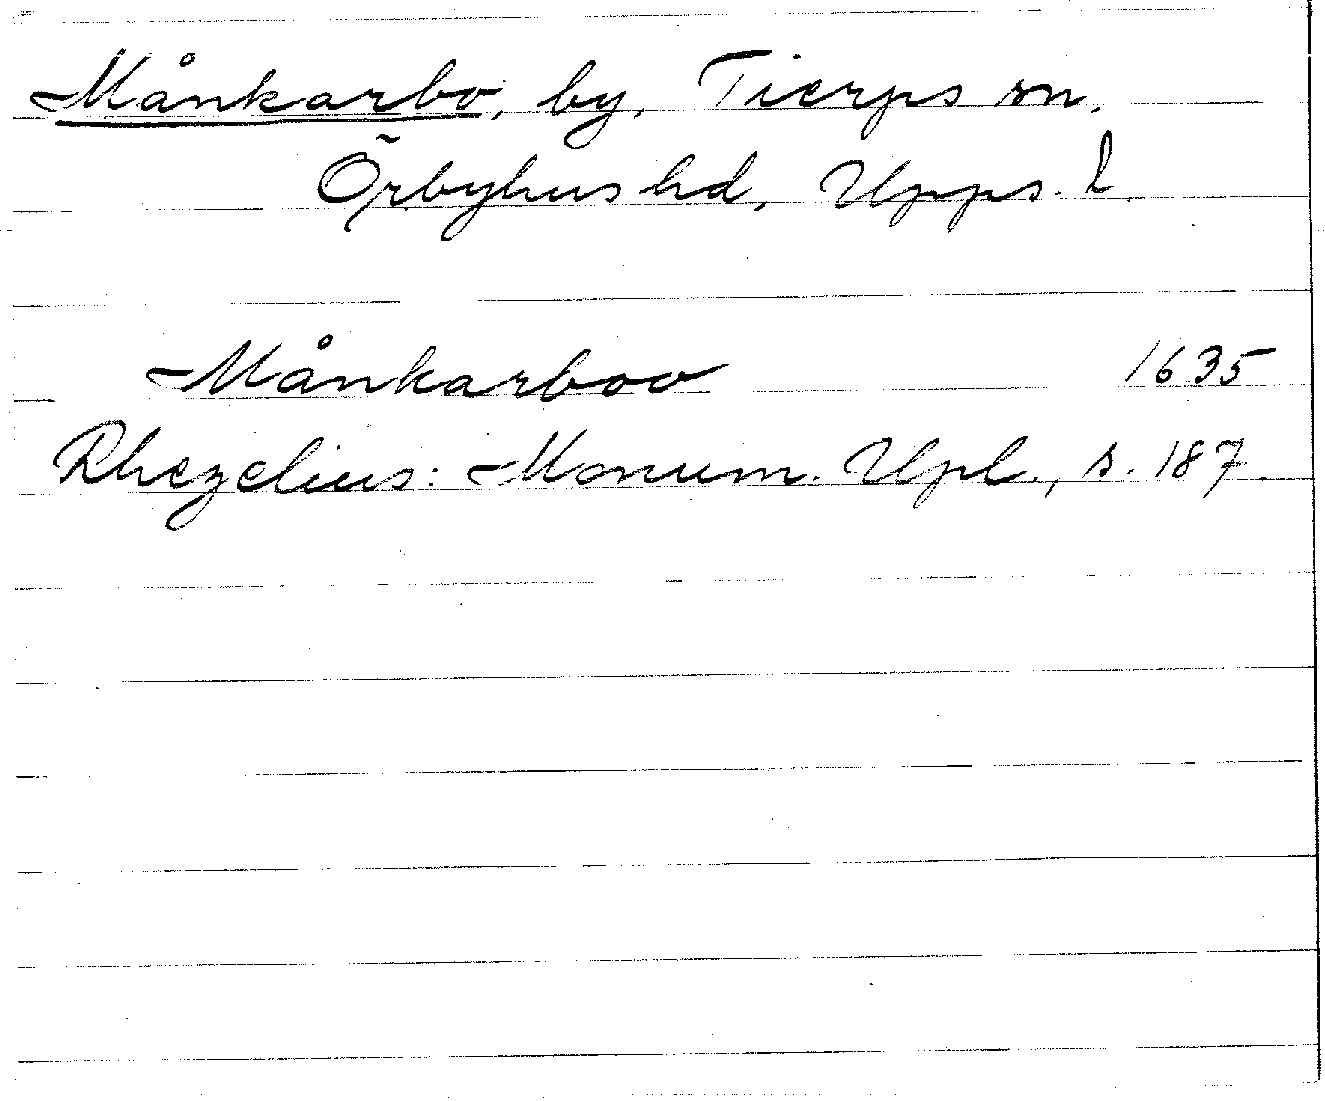 Månkarbo, by, Tierps sn.
Örbyhus hd, Upps. l.
Månkarboo 1635
Rhezelius: Monum. Upl., s. 187.